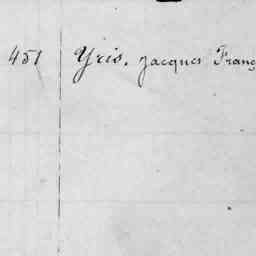 451 Yris, Jacques Franç